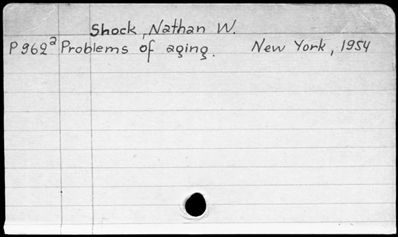 Shock, Nathan W.
P 962ª Problems of aging. New York, 1954